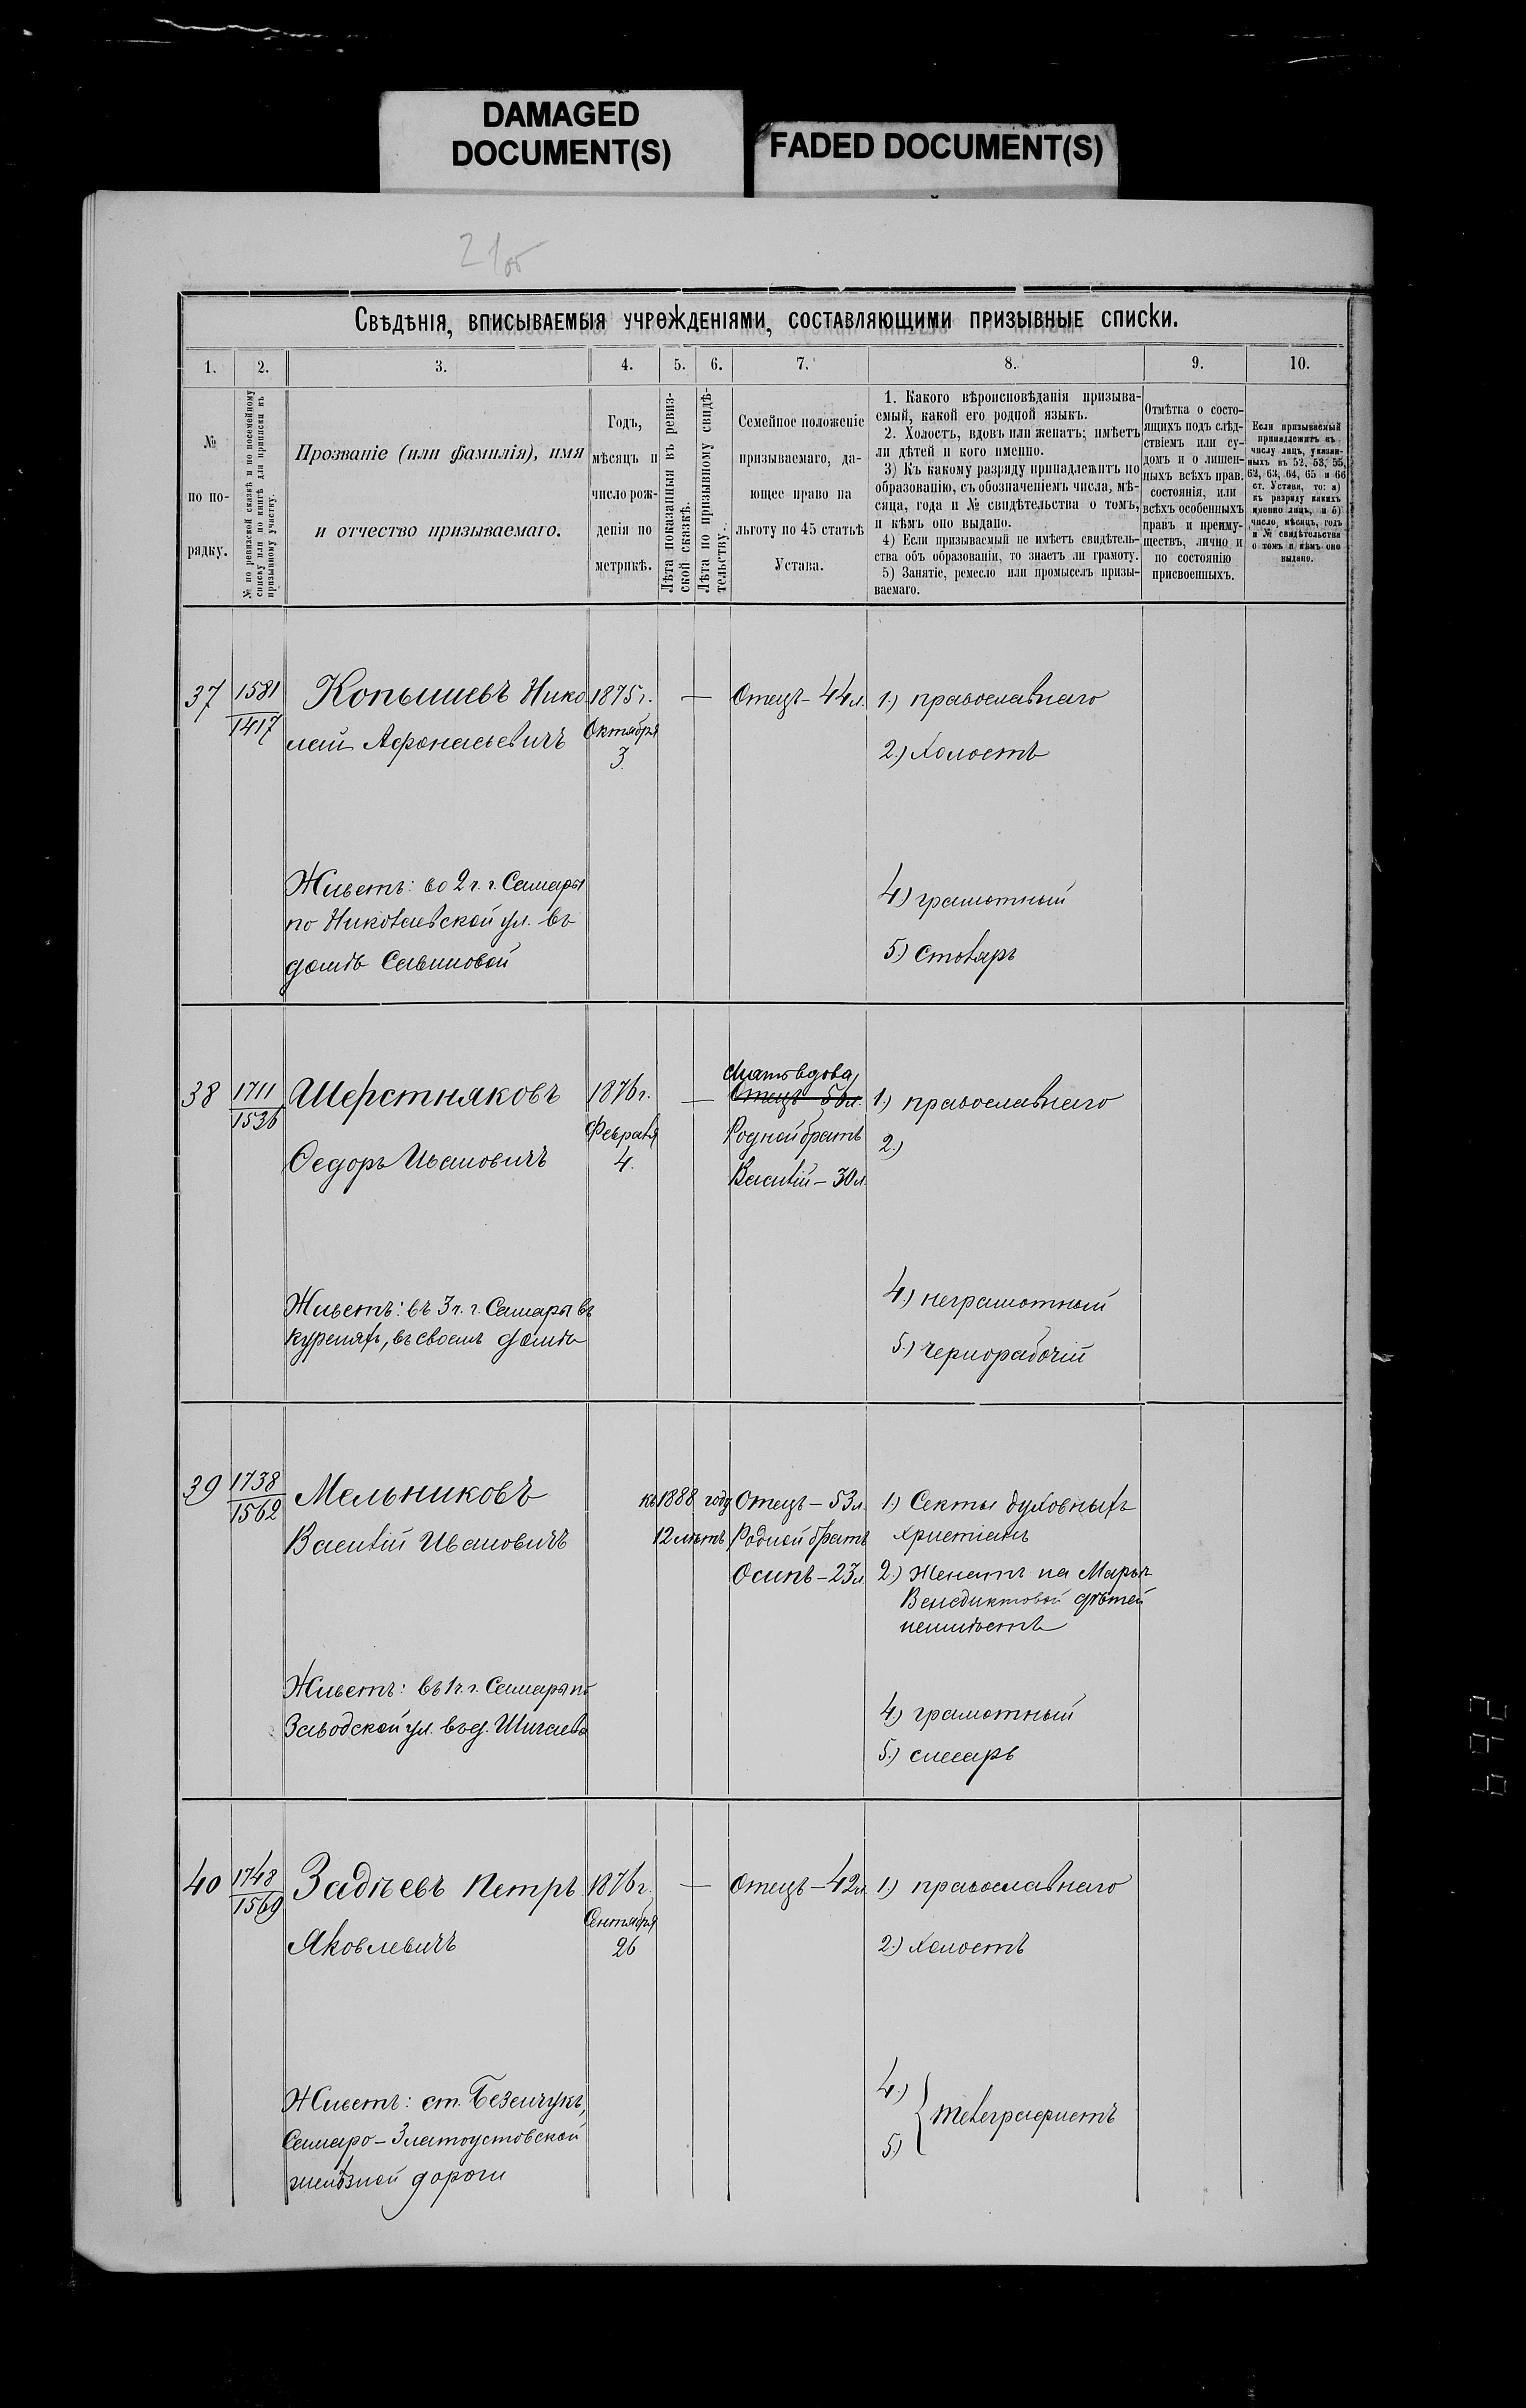 DAMAGED
DOCUMENT(S)
FADED DOCUMENT(S)
21об
Свѣдѣнія, вписываемыя учрежденіями, составляющими призывные списки.
1. 2. 3. 4. 5. 6. 7. 8. 9. 10.
№
по по-
рядку.
№ по ревизской сказкѣ и по посемейному
списку или по книгѣ для приписки къ
призывному участку.
Прозваніе (или фамилія), имя
и отчество призываемаго.
Годъ,
мѣсяцъ и
число рож-
денія по
метрикѣ.
Лѣта показанныя въ ревиз-
ской сказкѣ.
Лѣта по призывному свидѣ-
тельству.
Семейное положеніе
призываемаго, да-
ющее право на
льготу по 45 статьѣ
Устава.
1. Какого вѣроисповѣданія призыва-
емый, какой его родной языкъ.
2. Холостъ, вдовъ или женатъ; имѣетъ
ли дѣтей и кого именно.
3) Къ какому разряду принадлежитъ по
образованію, съ обозначеніемъ числа, мѣ-
сяца, года и № свидѣтельства о томъ,
и кѣмъ оно выдано.
4) Если призываемый не имѣетъ свидѣтель-
ства объ образованіи, то знаетъ ли грамоту.
5) Занятіе, ремесло или промыселъ призы-
ваемаго.
Отмѣтка о состо-
ящихъ подъ слѣд-
ствіемъ или су-
домъ и о лишен-
ныхъ всѣхъ прав.
состоянія, или
всѣхъ особенныхъ
правъ и преиму-
ществъ, лично и
по состоянію
присвоенныхъ.
Если призываемый
принадлежитъ къ
числу лицъ, указан-
ныхъ въ 52, 53, 55,
62, 63, 64, 65 и 66
ст. Устава, то: а)
къ разряду какихъ
именно лицъ, и б)
число, мѣсяцъ, годъ
и № свидѣтельства
о томъ и кѣмъ оно
выдано.
37
1581
1417
Копышевъ Нико
лай Афонасьевичъ
Живетъ: во 2 ч. г. Самары
по Николаевской ул. въ
домѣ Савиновой
1875 г.
Октября
3.
—
Отецъ – 44 л.
1.) православнаго
2.) Холостъ
4.) грамотный
5.) Столяръ
38
1711
1536
Шерстняковъ
Ѳедоръ Ивановичъ
Живетъ: въ 3 ч. г. Самары въ
куреняхъ, въ своемъ домѣ
1876 г.
Февраля
4.
—
Мать вдова,
Отецъ 56 л.
Родной братъ
Василій – 30 л.
1.) православнаго
2.)
4.) неграмотный
5.) чернорабочій
39
1738
1562
Мельниковъ
Василій Ивановичъ
Живетъ: въ 1 ч. г. Самары по
Заводской ул. въ д. Шигаева
къ 1888 году
12 лѣтъ
Отецъ – 53 л.
Родной братъ
Осипъ – 23 л.
1.) Секты духовныхъ
христіанъ
2.) Женатъ на Марьѣ
Венедиктовой дѣтей
неимѣетъ
4.) грамотный
5.) слесарь
40
1748
1569
Задѣевъ Петръ
Яковлевичъ
Живетъ: ст. Безенчукъ,
Самаро–Златоустовской
желѣзной дороги
1876 г.
Сентября
26
—
Отецъ – 42 л.
1.) православнаго
2.) Холостъ
4.)
5.)
телеграфистъ